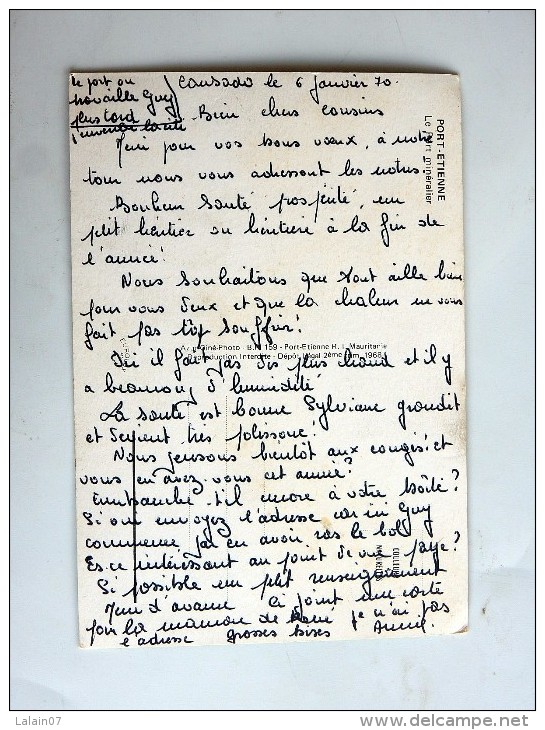 le port ou
travaille Guy
plus tard
j'enverrai la cité
Cansado le 6 janvier 70.
Bien chers cousins
Merci pour vos bons vœux, à notre
tour nous vous adressont les notres.
Bonheur Santé prospérité, un
ptit héritier ou héritière à la fin de
l'année!
Nous souhaitons que tout aille bien
pour vous deux et que la chaleur ne vous
fait pas trop souffrir!
Ici il fait pas des plus chaud et il y
a beaucoup d'humidité
La santé est bonne Sylviane grandit
et devient très polissone!
Nous pensons bientôt aux congés! et
vous en avez-vous cet année?
Embauche-t'il encore à votre boîte?
Si oui envoyez l'adresse car ici Guy
commence par en avoir ras le bol
Es.ce intéressant au point de vue paye?
Si possible un ptit renseignement
Merci d'avance Ci joint une carte
pour la maman de René je n'ai pas
l'adresse grosses bises Annie.
PORT-ETIENNE
Le Port minéralier
Ciné-Photo - B.P. 159 - Port-Etienne R. I. Mauritanie
Reproduction Interdite - Dépôt légal 2ème trim. 1968
Lalain07
www.delcampe.net